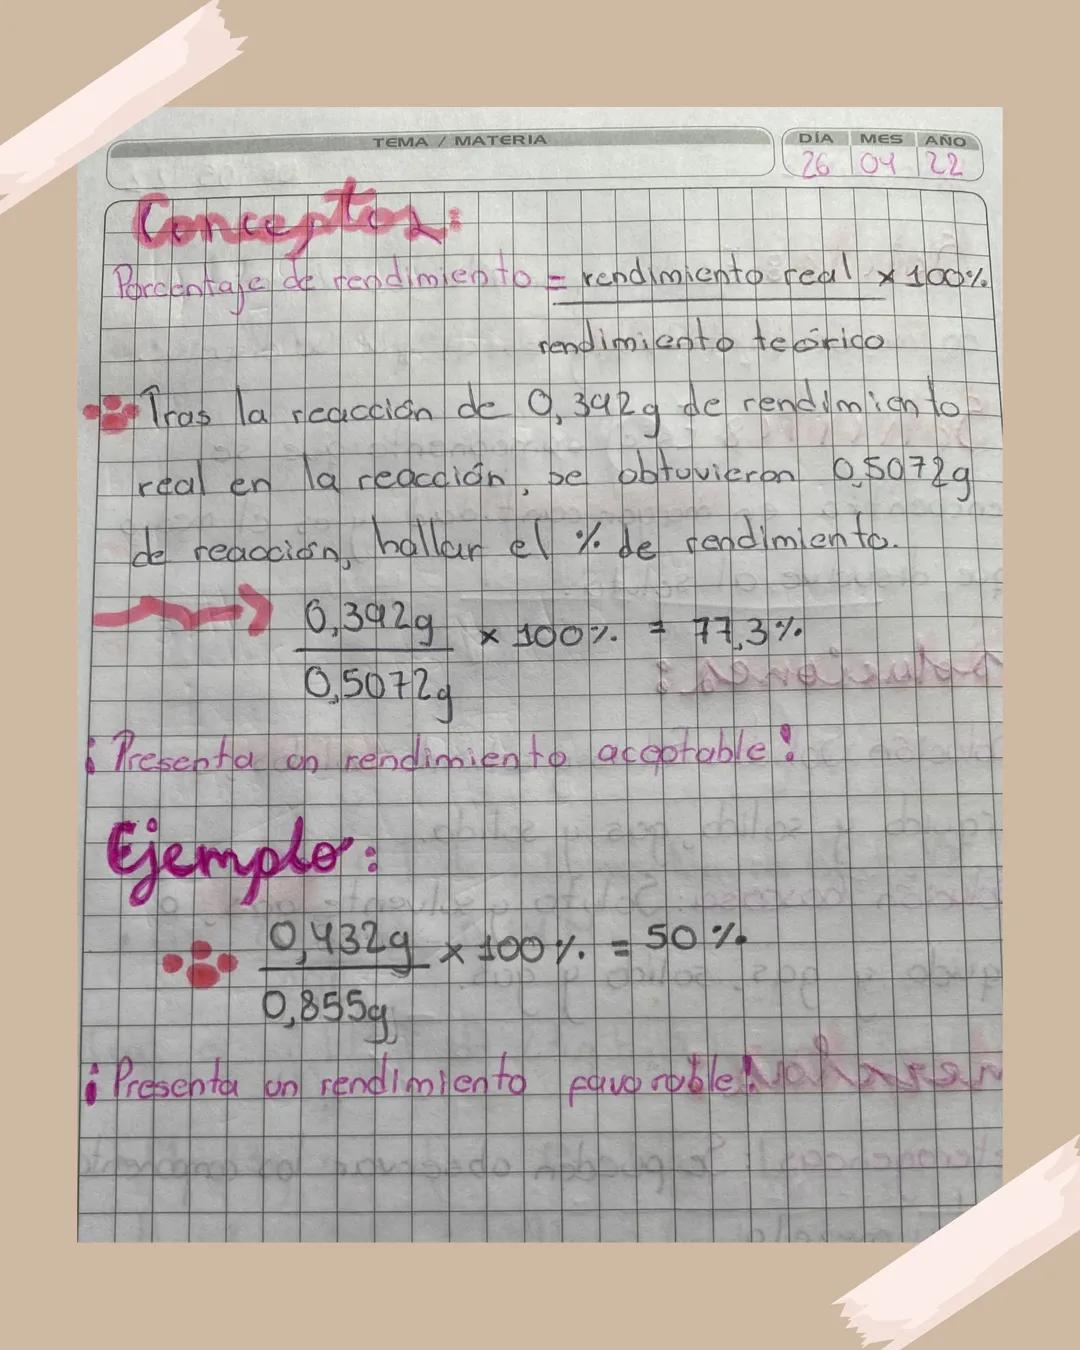 TEMA / MATERIA
DÍA MES AÑO
26 04 22
Conceptos:
Porcentaje de rendimiento = rendimiento real x 100%
rendimiento teórico
Tras la reacción de 0,392g de rendimiento
real en la reacción, se obtuvieron 0,5072g
de reacción, hallar el % de rendimiento.
0,392g x 100% = 77,3%
0,5072g
¡Presenta un rendimiento aceptable!
Ejemplo:
0,432g x 100% = 50%
0,855g
¡Presenta un rendimiento favorable!